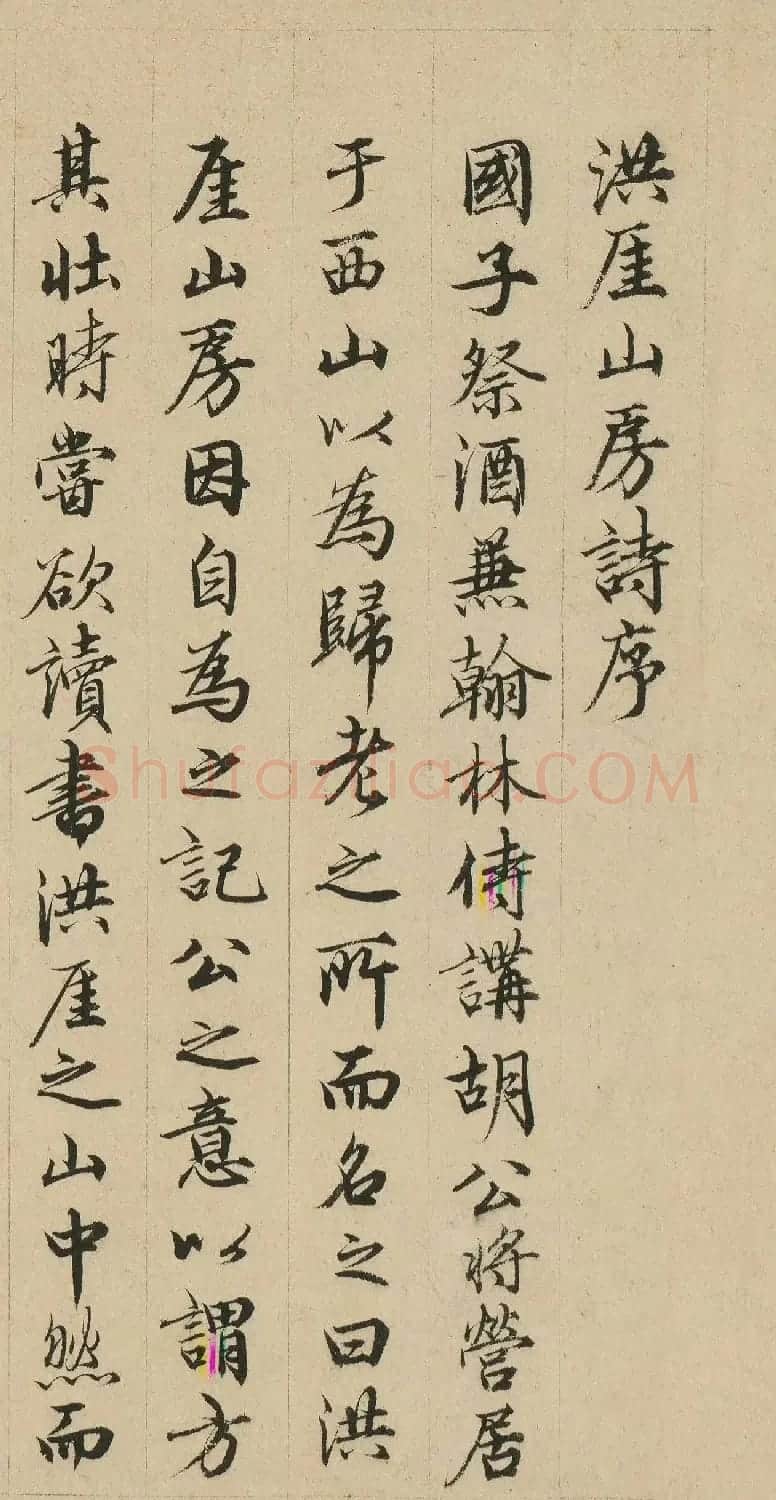 洪厓山房詩序
國子祭酒兼翰林侍講胡公將營居
于西山以為歸老之所而名之曰洪
厓山房因自為之記公之意以謂方
其壯時嘗欲讀書洪厓之山中然而
Shufaziliao.COM